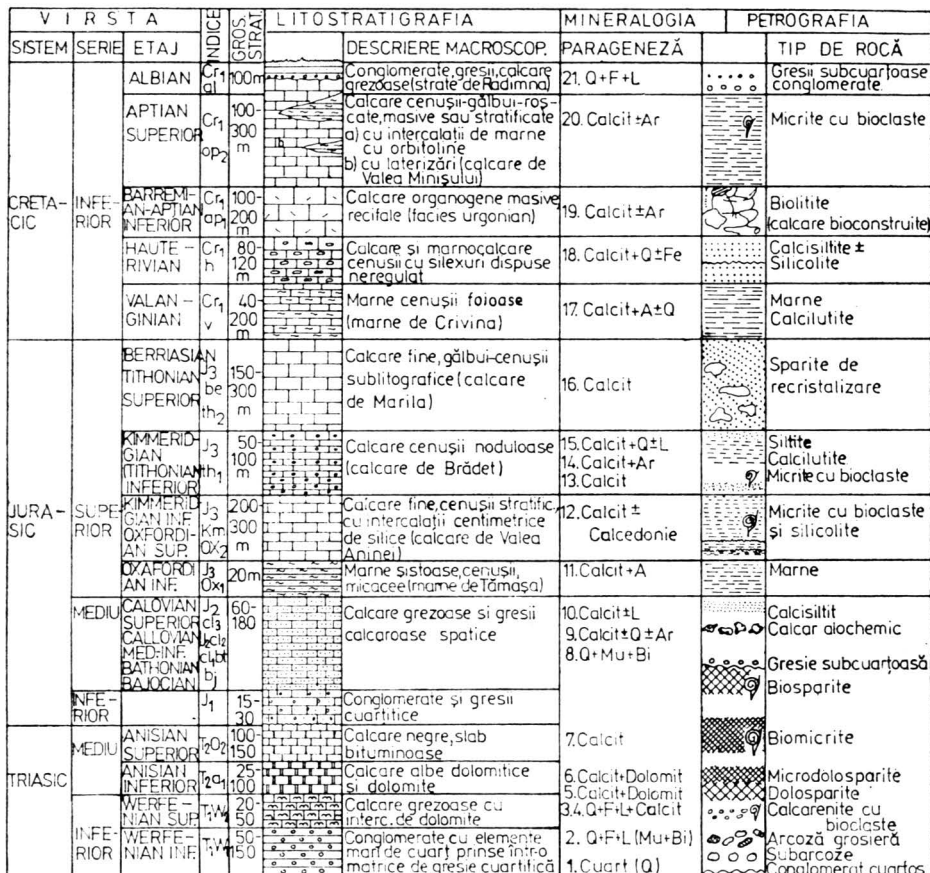 VIRSTA INDICE GROS. STRAT LITOSTRATIGRAFIA MINERALOGIA PETROGRAFIA
SISTEM SERIE ETAJ DESCRIERE MACROSCOP. PARAGENEZĂ TIP DE ROCĂ
CRETA-
CIC
INFE-
RIOR
ALBIAN Cr1 al 100m
Conglomerate, gresii, calcare
grezoase (strate de Radimna)
21. Q+F+L
Gresii subcuarțoase
conglomerate
APTIAN
SUPERIOR
Cr1 op2
100-
300
m
Calcare cenușii-gălbui-roș-
cate, masive sau stratificate
a) cu intercalații de marne
cu orbitoline
b) cu laterizări (calcare de
Valea Minișului)
b
20. Calcit ±Ar
Micrite cu bioclaste
BARREMI-
AN-APTIAN
INFERIOR
Cr1 ap1
100-
200
m
Calcare organogene masive
recifale (facies urgonian)
19. Calcit±Ar
Biolitite
(calcare bioconstruite)
HAUTE-
RIVIAN
Cr1 h
80-
120
m
Calcare și marnocalcare
cenușii cu silexuri dispuse
neregulat
18. Calcit+Q±Fe
Calcisiltite ±
Silicolite
VALAN-
GINIAN
Cr1 v
40-
200
m
Marne cenușii foioase
(marne de Crivina)
17. Calcit+A±Q
Marne
Calcilutite
JURA-
SIC
SUPE-
RIOR
BERRIASIAN
TITHONIAN
SUPERIOR
J3 be th2
150-
300
m
Calcare fine, gălbui-cenușii
sublitografice (calcare
de Marila)
16. Calcit
Sparite de
recristalizare
KIMMERID-
GIAN
(TITHONIAN
INFERIOR
J3 th1
50-
100
m
Calcare cenușii noduloase
(calcare de Brădet)
15. Calcit+Q±L
14. Calcit+Ar
13. Calcit
Siltite
Calcilutite
Micrite cu bioclaste
KIMMERID-
GIAN INF.
OXFORDI-
AN SUP.
J3 Km Ox2
200-
300
m
Calcare fine, cenușii stratific.
cu intercalații centimetrice
de silice (calcare de Valea
Aninei)
12. Calcit ±
Calcedonie
Micrite cu bioclaste
și silicolite
OXAFORDI
AN INF.
J3 Ox1
20m
Marne șistoase, cenușii,
micacee (marne de Tămașa)
11. Calcit+A
Marne
MEDIU
CALOVIAN
SUPERIOR
CALLOVIAN
MED-INF.
BATHONIAN
BAJOCIAN
J2 cl3
bj
60-
180
Calcare grezoase si gresii
calcaroase spatice
10. Calcit±L
9. Calcit±Q±Ar
8. Q+Mu+Bi
Calcisiltit
Calcar alochemic
Gresie subcuarțoasă
Biosparite
INFE-
RIOR
J1
15-
30
Conglomerate și gresii
cuartitice
TRIASIC
MEDIU
ANISIAN
SUPERIOR
T2O2
100-
150
Calcare negre, slab
bituminoase
7. Calcit
Biomicrite
ANISIAN
INFERIOR
T2a1
25-
100
Calcare albe dolomitice
si dolomite
6. Calcit+Dolomit
5. Calcit+Dolomit
Microdolosparite
Dolosparite
INFE-
RIOR
WERFE-
NIAN SUP.
T1W2
20-
50
Calcare grezoase cu
interc. de dolomite
3.4. Q+F+L+Calcit
Calcarenite cu
bioclaste
WERFE-
NIAN INF.
50-
150
Conglomerate cu elemente
mari de cuarț prinse într-o
matrice de gresie cuartifică
2. Q+F+L (Mu+Bi)
1. Cuart (Q)
Arcoză grosieră
Subarcoze
Conglomerat cuarțos